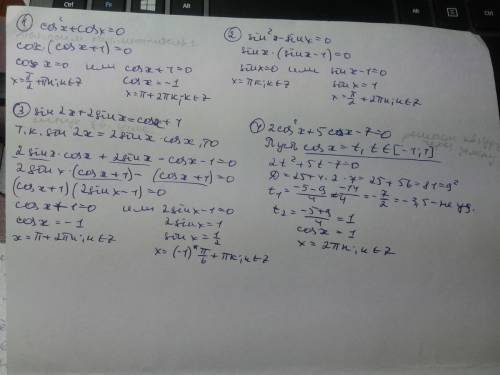 ① cos²x+cosx=0
cosx·(cosx+1)=0
cosx=0 или cosx+1=0
x=π/2+πn; n∈Z cosx=-1
x=π+2πk; k∈Z
② sin²x-sinx=0
sinx·(sinx-1)=0
sinx=0 или sinx-1=0
x=πk; k∈Z sinx=1
x=π/2+2πn; n∈Z
③ sin2x+2sinx=cosx+1
т.к. sin2x=2sinx·cosx, то
2sinx·cosx+2sinx-cosx-1=0
2sinx·(cosx+1)-(cosx+1)=0
(cosx+1)(2sinx-1)=0
cosx+1=0 или 2sinx-1=0
cosx=-1 2sinx=1
x=π+2πn; n∈Z sinx=1/2
x=(-1)ᵏ π/6+πk; k∈Z
④ 2cos²x+5cosx-7=0
Пусть cosx=t, t∈[-1;1]
2t²+5t-7=0
D=25+4·2·7=25+56=81=9²
t₁=(-5-9)/4=-14/4=-7/2=-3,5-не уд.
t₂=(-5+9)/4=1
cosx=1
x=2πn; n∈Z